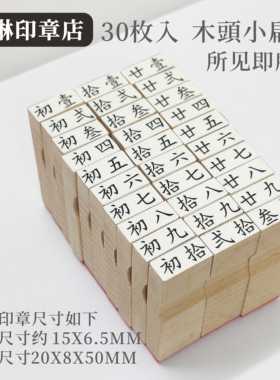 琳印章店
30枚入 木頭小扁
所见即所
初壹 拾壹 廿壹
初弍 拾弍 廿弍
初叁 拾叁 廿叁
初四 拾四 廿四
初五 拾五 廿五
初六 拾六 廿六
初七 拾七 廿七
初八 拾八 廿八
初九 拾九 廿九
初拾 弍拾 叁拾
印章尺寸如下
尺寸约 15X6.5MM
尺寸20X8X50MM